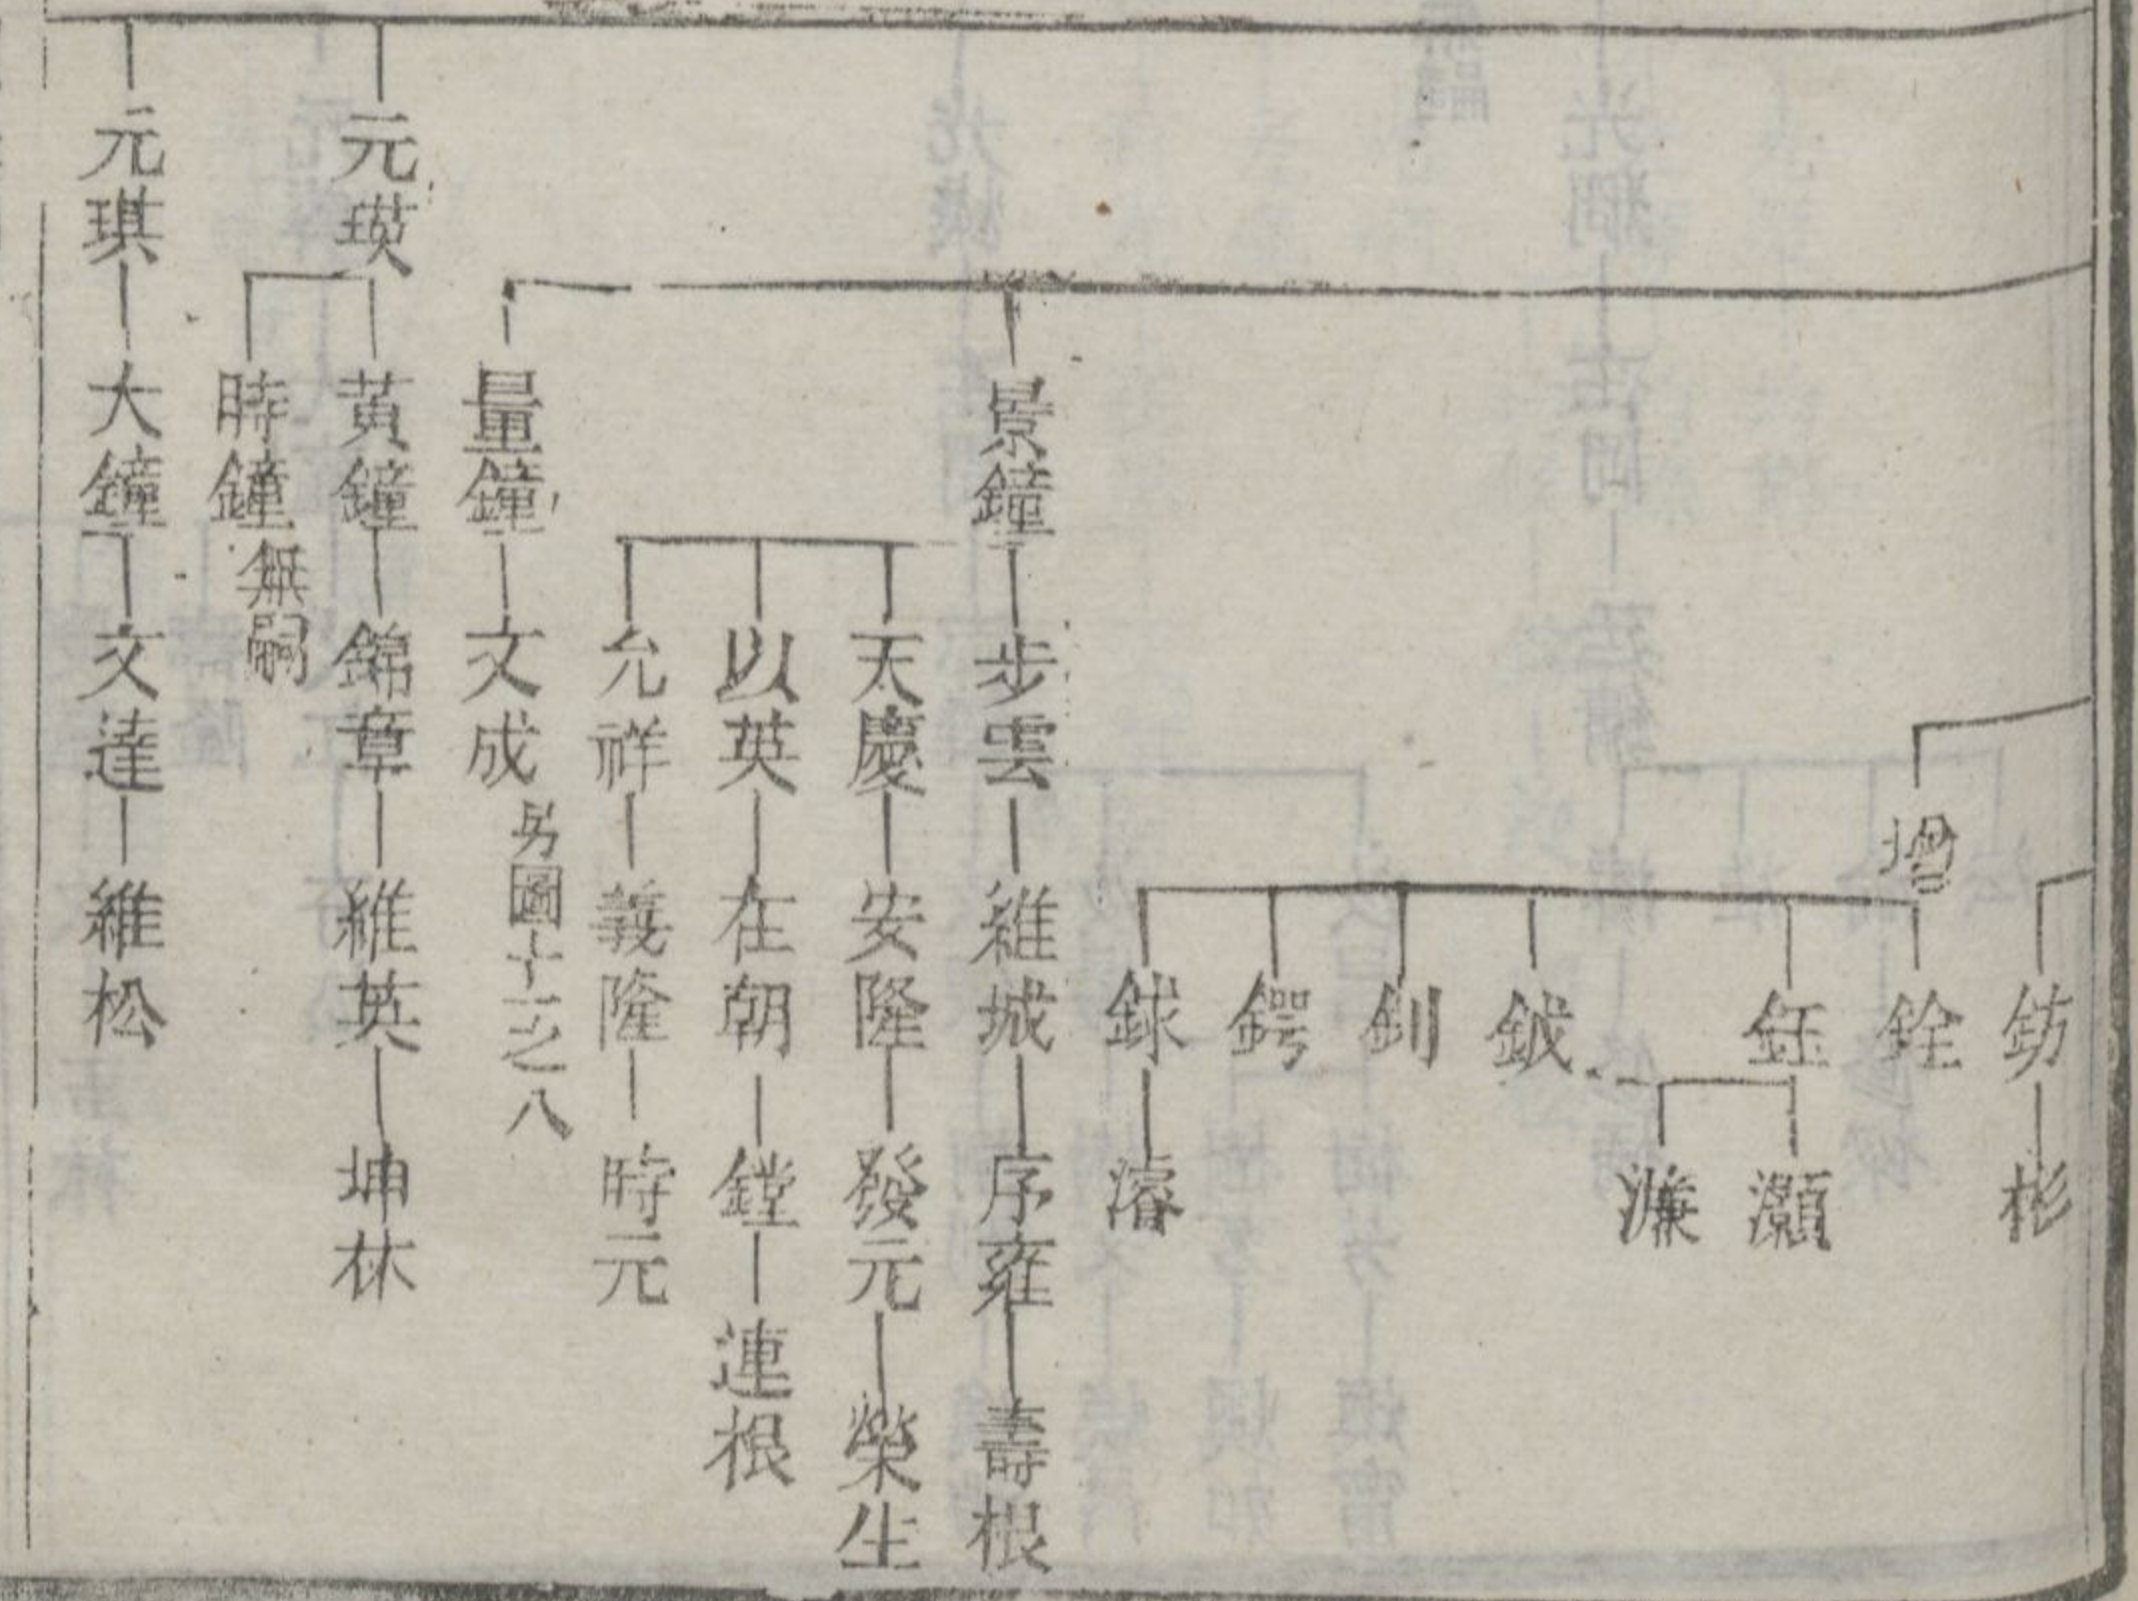 鈁 彬
增
銓
鉦 灝
濂
鉞
釗
鍔
銶 濬
景鐘 步雲 維城 序雍 壽根
天慶 安隆 發元 榮生
以英 在朝 鏜 連根
允祥 義隆 時元
量鐘 文成 另圖十一之八
元瑛 黃鐘 錦章 維英 坤林
時鐘 無嗣
元琪 大鐘 文達 維松